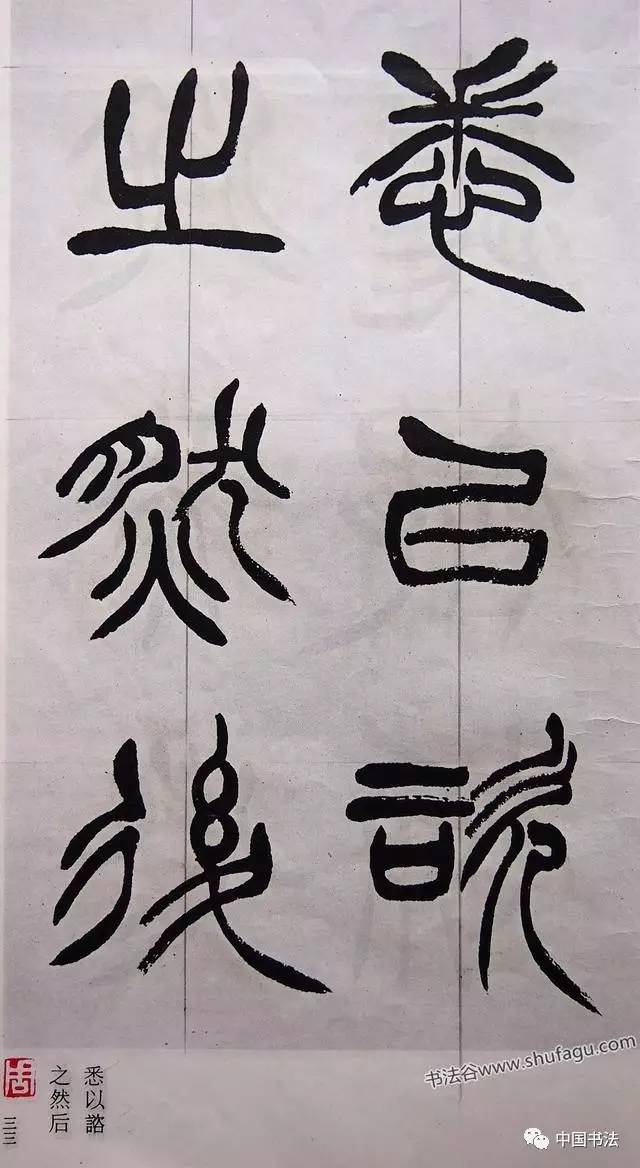 悉以諮
之然後
悉以諮
之然后
三三
书法谷www.shufagu.com
中国书法